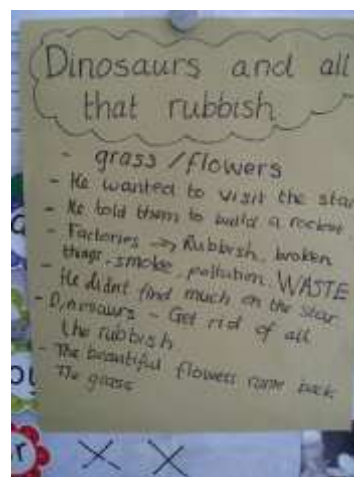 Dinosaurs and all
that rubbish
- grass / flowers
- He wanted to visit the star
- He told them to build a rocket
- Factories → Rubbish, broken
things, smoke, pollution, WASTE
- He didnt find much on the star
- Dinosaurs - Get rid of all
the rubbish
- The beautiful flowers came back
The grass